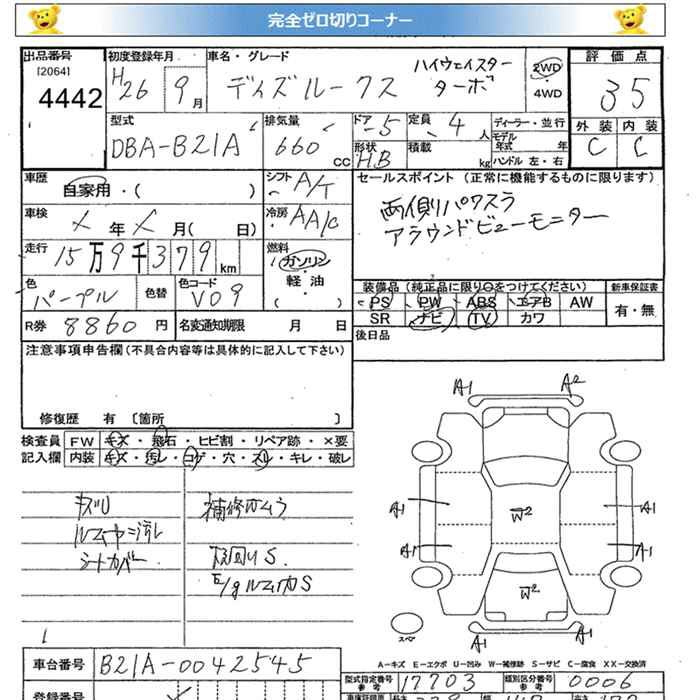 完全ゼロ切りコーナー
出品番号 [2064] 4442
初度登録年月 H26 9月
車名・グレード ディズルークス ハイウェイスター ターボ
2WD 4WD
評価点 35
外装 C 内装 C
型式 DBA-B21A
排気量 660 CC
ドア 5 定員 4人
形状 HB 積載 kg
ディーラー・並行
モデル年式 年
ハンドル 左・右
車歴 自家用・( )
シフト A/T
車検 年 月( 日)
冷房 AA/C
走行 15万9千379km
燃料 ガソリン・軽油・( )
色 パープル 色替 色コード V09
R券 8860円 名変通知期限 月 日
セールスポイント (正常に機能するものに限ります)
両側パワスラ
アラウンドビューモニター
装備品(純正品に限り○をつけてください) 新車保証書
PS PW ABS エアB AW 有・無
SR ナビ TV カワ
後日品
注意事項申告欄(不具合内容等は具体的に記入して下さい)
修復歴 有 〔箇所 〕
検査員 FW キズ・飛石・ヒビ割・リペア跡・×要
記入欄 内装 キズ・汚レ・コゲ・穴・スレ・キレ・破レ
補修ムラ
シートカバー
下回りS
E/gルム内S
A1 A2
A1 W2 A1
A1 A1
W2
スペア
A1 A1
A-キズ E-エクボ U-凹み W-補修跡 S-サビ C-腐食 XX-交換済
車台番号 B21A-0042545
型式指定番号 参考 17703 類別区分番号 参考 0006
登録番号